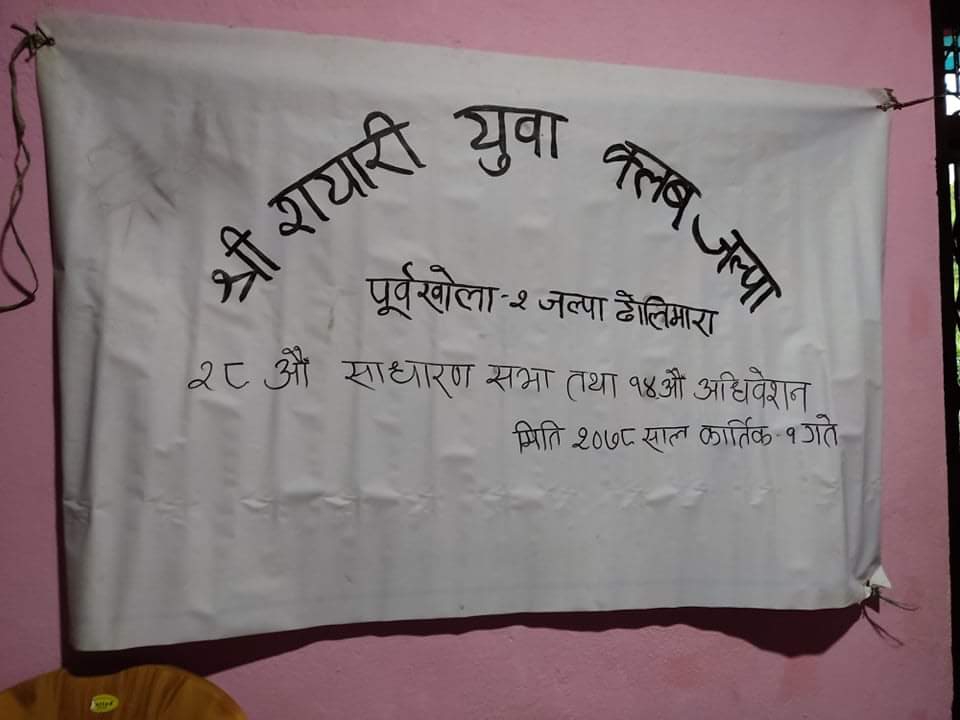 श्री रायारी युवा क्लब जल्पा
पूर्वखोला-२ जल्पा ढोलिमारा
२८ औं साधारण सभा तथा १४औ अधिवेशन
मिति २०७८ साल कार्तिक-१ गते